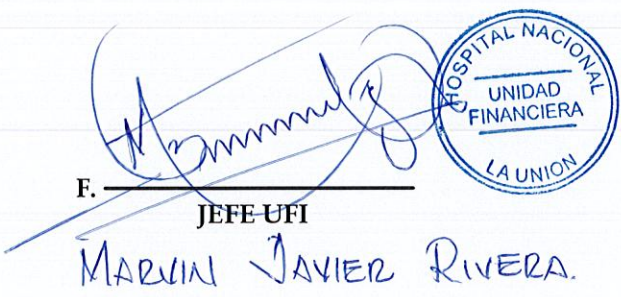 HOSPITAL NACIONAL
UNIDAD
FINANCIERA
LA UNION
F.
JEFE UFI
MARVIN JAVIER RIVERA.